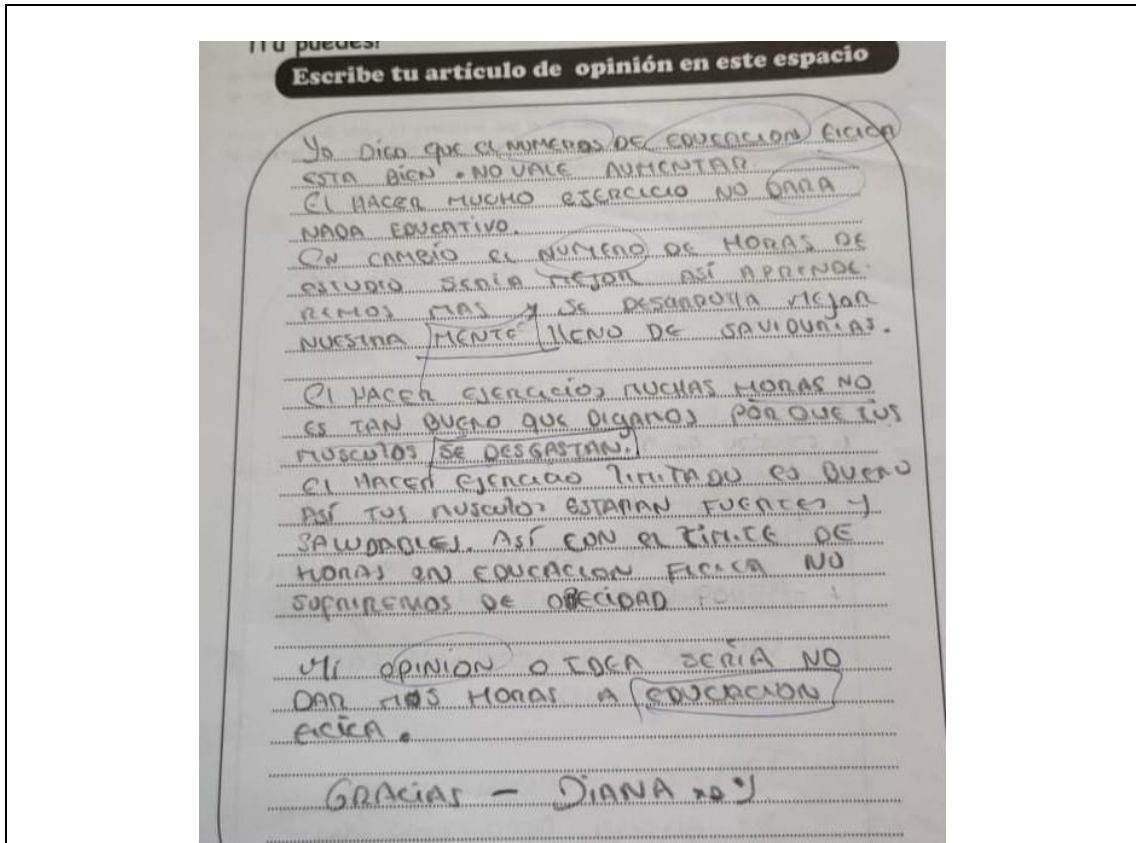 ¡Tú puedes!
Escribe tu artículo de opinión en este espacio
YO DIGO QUE EL NUMEROS DE EDUCACION FICICA
ESTA BIEN. NO VALE AUMENTAR
El HACER MUCHO EJERCICIO NO DARA
NADA EDUCATIVO.
EN CAMBÍO EL NUMERO DE HORAS DE
ESTUDIO SERÍA MEJOR ASÍ APRENDE-
REMOS MAS Y SE DESARROlla MEJOR
NUESTRA MENTE llENO DE SAVIDURIAS.
El HACER EJERCICÍOS MUCHAS HORAS NO
ES TAN BUENO QUE DIGAMOS PORQUE TUS
MUSCULOS SE DESGASTAN.
El HACER EJERCICIO lIMITADO ES BUENO
ASÍ TUS MUSCULOS ESTARAN FUERTES Y
SALUDABLES. ASÍ CON EL LÍMITE DE
HORAS EN EDUCACION FICICA NO
SOFRIREMOS DE OBECIDAD
MI OPINION O IDEA SERÍA NO
DAR MAS HORAS A EDUCACION
FICÍCA.
GRACIAS - DIANA